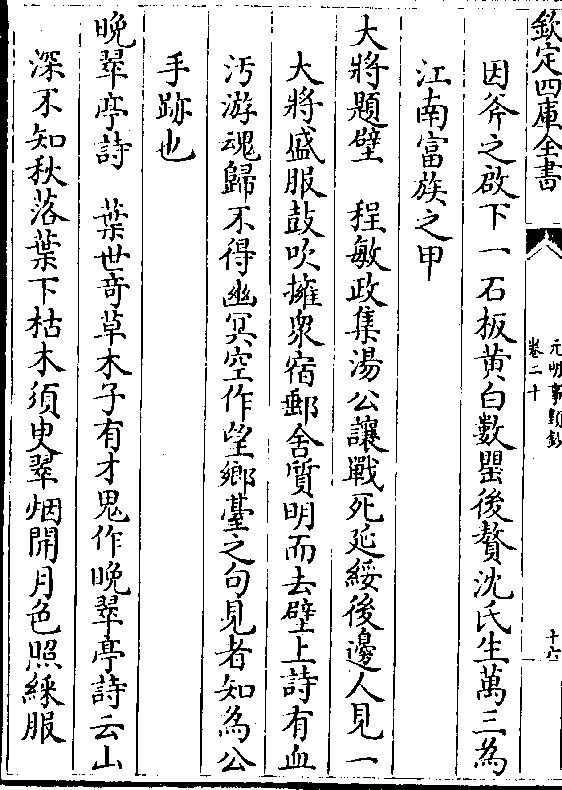 欽定四庫全書
元明事類鈔
卷二十
十六
因斧之啟下一石板黃白數罌後贅沈氏生萬三為
江南富族之甲
大將題壁　程敏政集湯公讓戰死延綏後邊人見一
大將盛服鼓吹擁衆宿郵舍質明而去壁上詩有血
汚游魂歸不得幽冥空作望鄉臺之句見者知為公
手跡也
晚翠亭詩　葉世竒草木子有才鬼作晚翠亭詩云山
深不知秋落葉下枯木須臾翠烟開月色照綵服